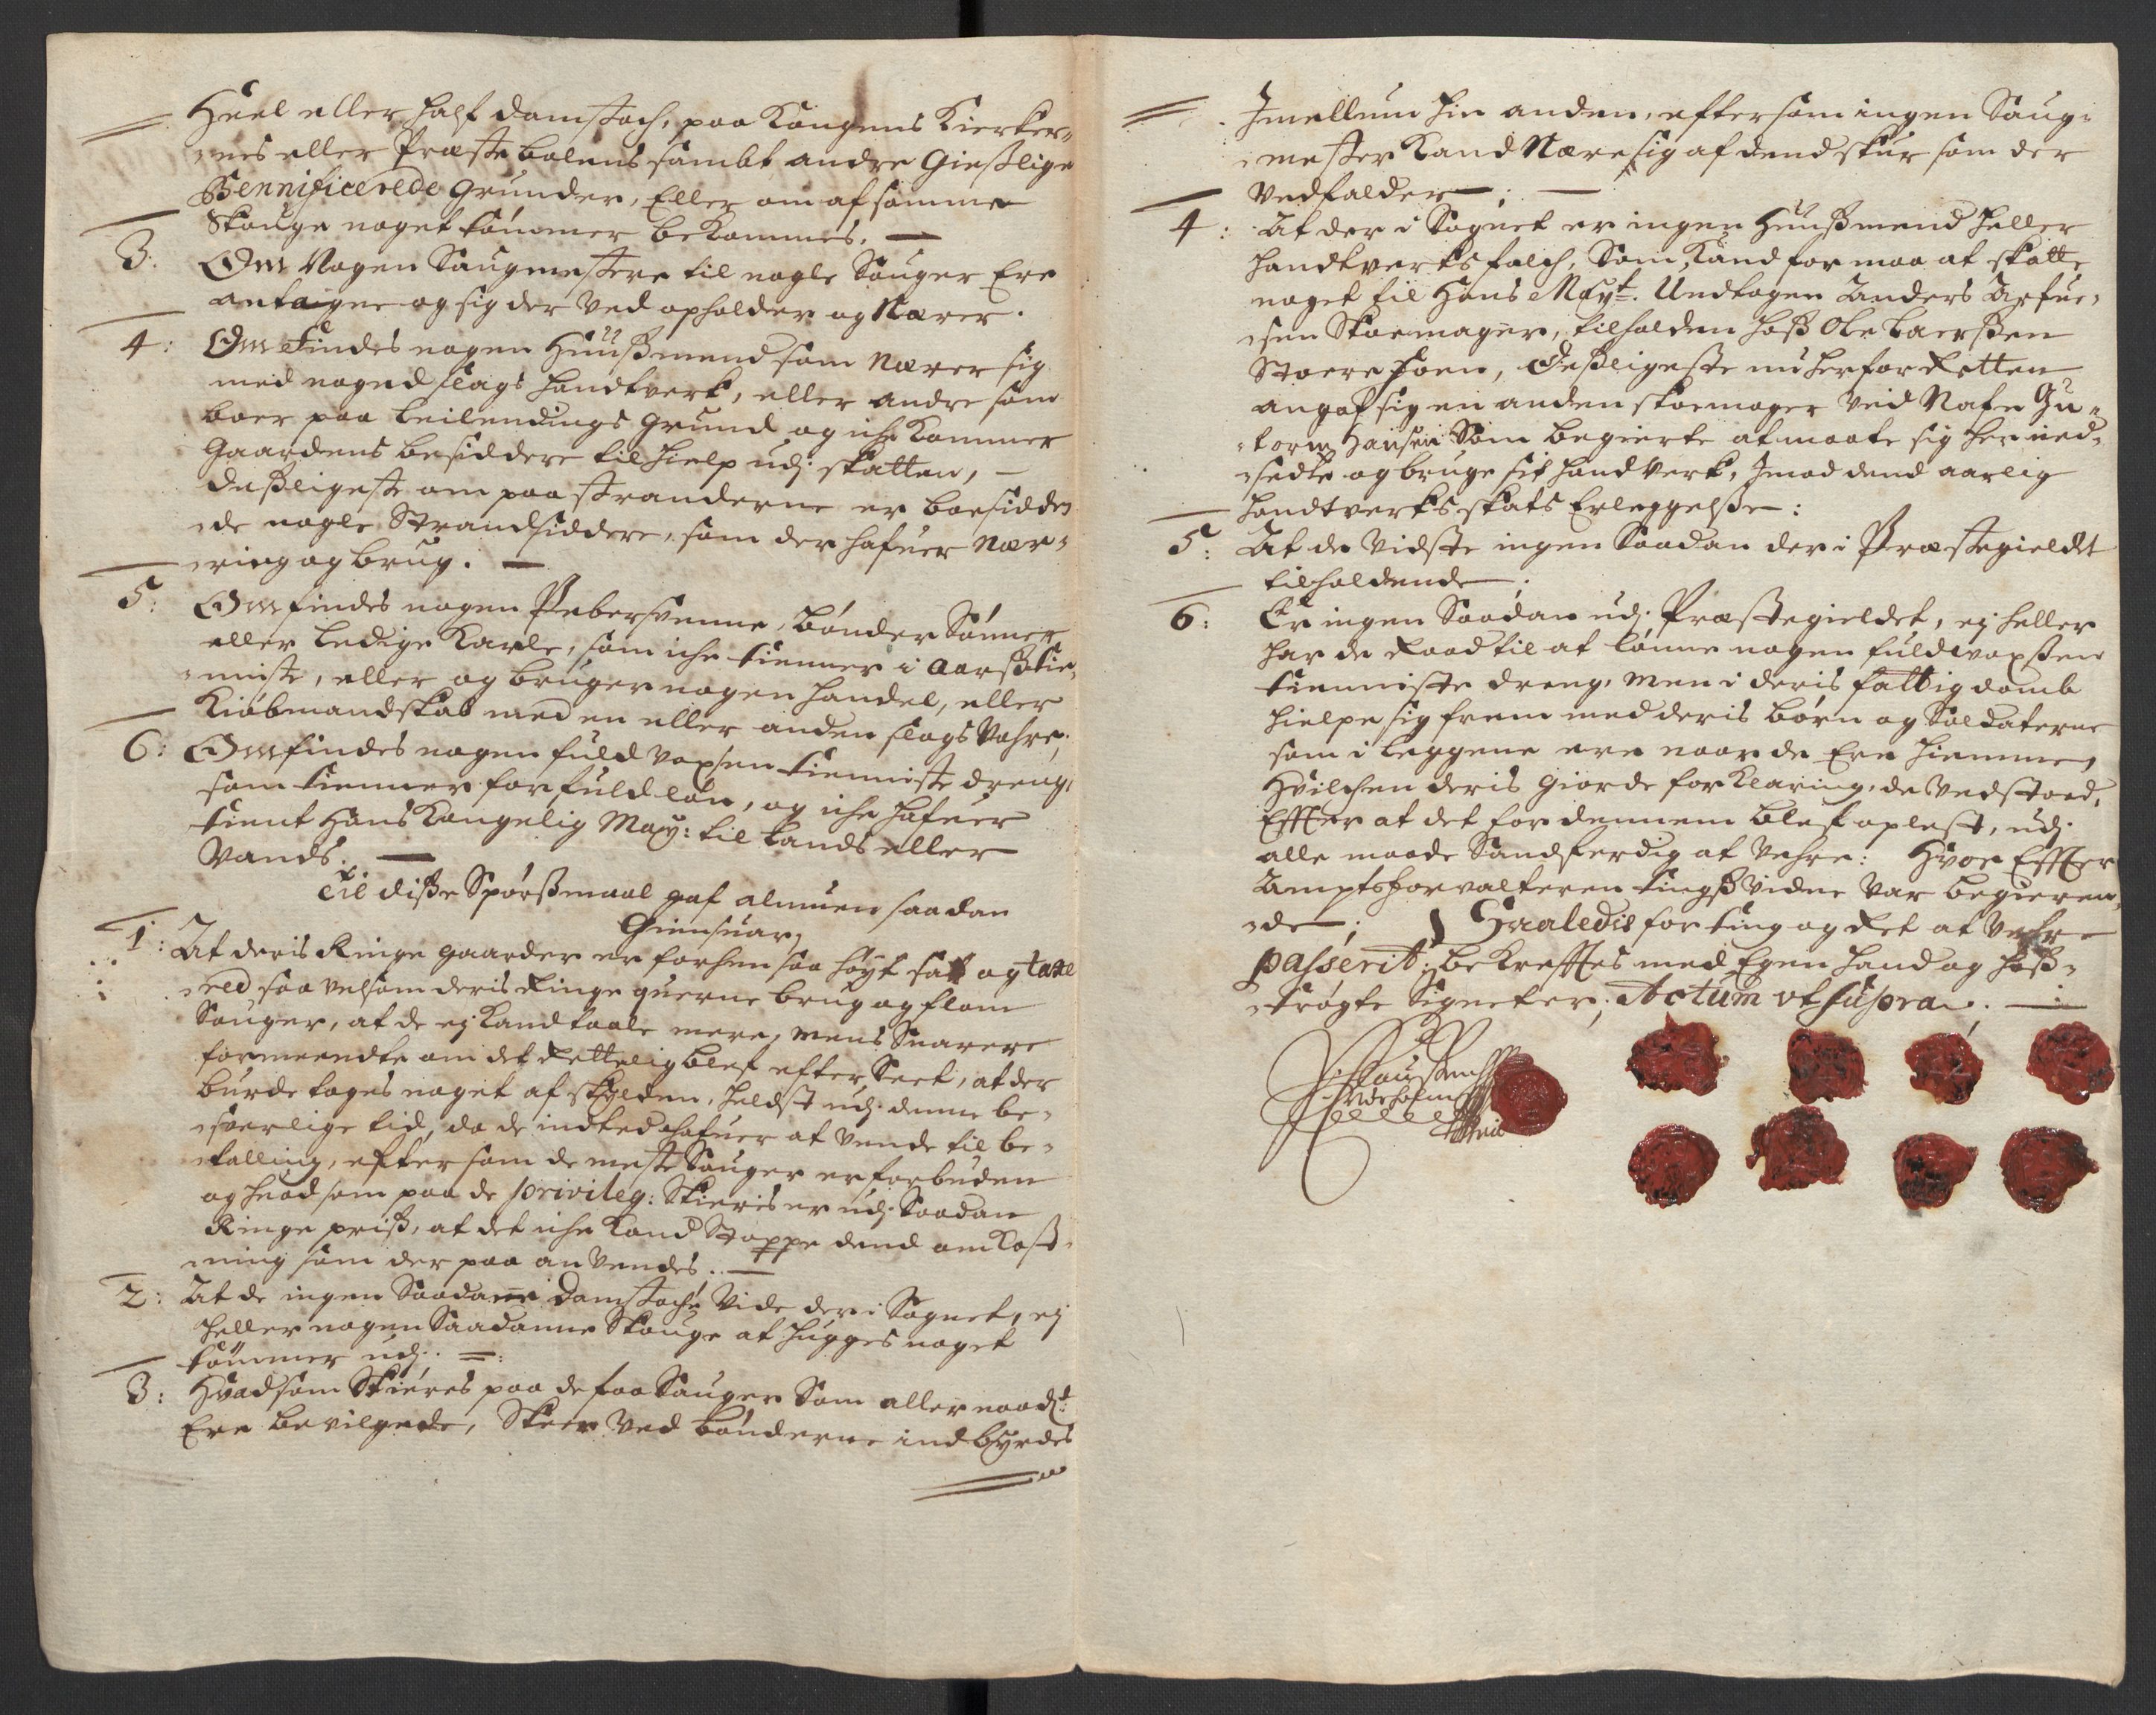 Heel eller half damstoch, paa Kongens Kierker¬
nes eller Præstebolens sambt andre Giestlige
Bennificerede grunder, Eller om af samme
Skouge noget tømmer bekommes. —
3: Om Nogen Saugmestere til nogle Sauger Ere
antagne og sig der ved opholder og Nærer.
4: Om Findes nogen Huußmend som Nærer sig
med noged slags handtverk, eller andre som
boer paa Leilendings grund og iche kommer
Gaardens besiddere til hielp udj skatten, —
deßligeste om paa stranderne er boesidden
de nogle Strandsiddere, som der hafuer Nær¬
ring og brug. —
5: Om findes nogen Pebersvenne, bønder Sønner
eller ledige Karle, som iche tienner i Aarßtie¬
niste, eller og bruger nogen handel, eller
Kiøbmandskab med en eller anden slags Vahre,
6: Om findes nogen fuldvoxen tienniste dreng,
som tienner for fuld løn, og iche hafuer
tient Hans Kongelig May: til Lands eller
Vands. —
Til diße Spørßmaal gaf almuen saadan
Giensuar,
1: At deris Ringe gaarder er forhen saa høyt sat og taxe
red saa velsom deris Ringe querne brug og flom
Sauger, at de ej kand taale mere, mens Snarere
formeendte om det Rettelig blef efter Seet, at der
burde tages noget af skylden, heldst udj denne be¬
sværlige tid, da de indted hafuer at vende til be¬
talling, eftersom de meste Sauger er forbuden
og huad som paa de privileg: Skieris er udj Saadan
Ringe priß, at det iche kand Stoppe dend omkost¬
ning som der paa anvendes. —
2: At de ingen Saadanne Damstoche vide der i Sognet, ej
heller nogen Saadanne Skouge at hugges noget
tømmer udj. =
3: Hvad som Skieres paa de faa Sauger Som allernaadt:
Ere bevilgede, Skeer ved bønderne indbyrdes
Jmellum hin anden, eftersom ingen Saug¬
mester kand Nære sig af dend skur som der
vedfalder; —
4: At der i Sognet er ingen Huußmend heller
handtverksfolch, Som kand formaa at skatte
noget til Hans Mayt. Undtagen Anders Arfue¬
sen Skoemager, tilholden hoß Ole Laerßen
Stoere Hoen, Deßligeste nu her for Retten
angaf sig en anden skoemager ved Nafn Gu¬
torm Hansen Som begierte at maate sig her ned¬
sedte og bruge sit handtverk, Jmod dend aarlig
handtverks skats Erleggelße:
5: At de vidste ingen Saadan der i Præstegieldet
tilholdende;
6: Er ingen Saadan udj Præstegieldet, ej heller
har de Raad til at lønne nogen fuldvoxßen
tienniste dreng, men i deris fattigdomb
hielpe sig frem med deris børn og Soldaterne
som i leggene ere naar de Ere hiemme,
Hvilchen deris giorde forklaring, de vedstoed,
Effter at det for dennem blef oplest, udj
alle maade Sandferdig at vehre: Hvor Effter
Amptsforvalteren tingßvidne var begieren¬
de; Saaledis for ting og Ret at vehre
passerit, bekrefftes med Egen hand og hoß¬
trøgte Signeter, Actum ut supra. —